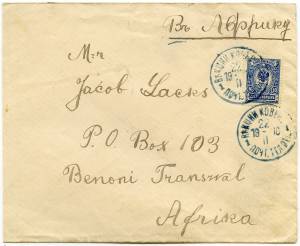 Въ Африку
Mr
Jacob Lacks
P.O Box 103
Benoni Transwal
Afrika
22
19 10
11
22
19 10
11